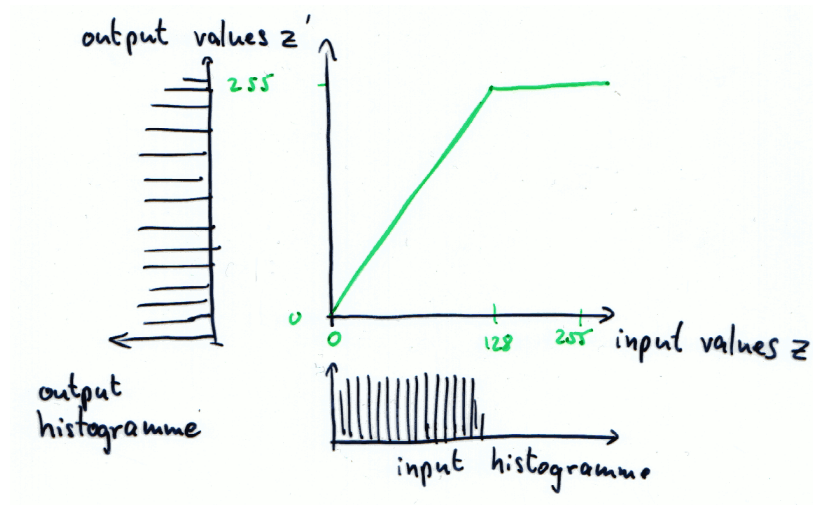 output values z'
255
0
0 128 255
input values z
output
histogramme
input histogramme